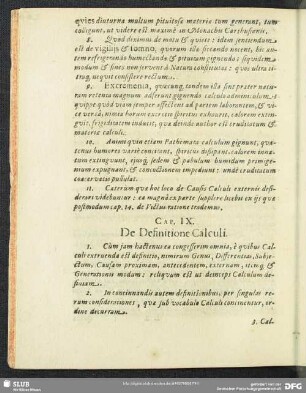 quies diuturna multum pituitosæ materiæ tum generant, tum
colligunt, ut videre est maximè in Monachis Carthusianis.
8. Quod diximus de motu & quiete: idem sentiendum
est de vigiliis & somno, quorum illæ siccando nocent, hic au-
tem refrigerando humectando & pituitam gignendo: siquidem
modum & fines non servent à Naturâ constitutos: quos ultra ci-
troq; nequit consistere rectum.
9. Excrementa, quæcunq; tandem illa sint præter natu-
ram retenta magnum adferunt gignendo calculo adminiculum:
quippe quæ viam semper affectent ad partem laborantem, & vice
versâ, nimia horum excretio spiritus exhaurit, calorem extin-
guit, frigiditatem inducit, quæ deinde author est cruditatum &
materiæ calculi.
10. Animi quin etiam Pathemata calculum gignunt, qua-
tenus humores variè concitant, spiritus dissipant, calorem inna-
tum extinguunt, ejusq; sedem & pabulum humidum primige-
nium expugnant, & concoctionem impediunt: unde cruditatum
coacervatio pullulat.
11. Cæterùm quæ hoc loco de Causis Calculi externis desi-
derari videbuntur: ea magnâ ex parte supplere licebit ex iis quæ
postmodum cap. 14. de Victus ratione trademus.
CAP. IX.
De Definitione Calculi.
1. Cùm jam hactenus ea congesserim omnia, è quibus Cal-
culi extruenda est definitio, nimirum Genus, Differentias, Subje-
ctum, Causam proximam, antecedentem, externam, itemq; &
Generationis modum: reliquum est ut deinceps Calculum de-
finiam.
2. In concinnandis autem definitionibus, per singulas re-
rum considerationes, quæ sub vocabulo Calculi continentur, or-
dine decurram.
3. Cal-
SLUB
Wir führen Wissen.
gefördert von der
Deutschen Forschungsgemeinschaft
DFG